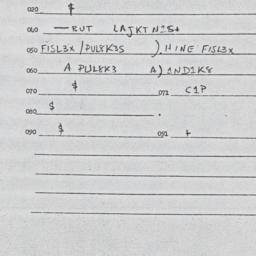 020 $
040 — RUT LAJKT N15+
050 FISL3X / PUL8K3S ). HINE FISL3X
060 A PUL8K3 A) 2ND1K8
070 $ 071 C1P
080 $ .
090 $ 091 +